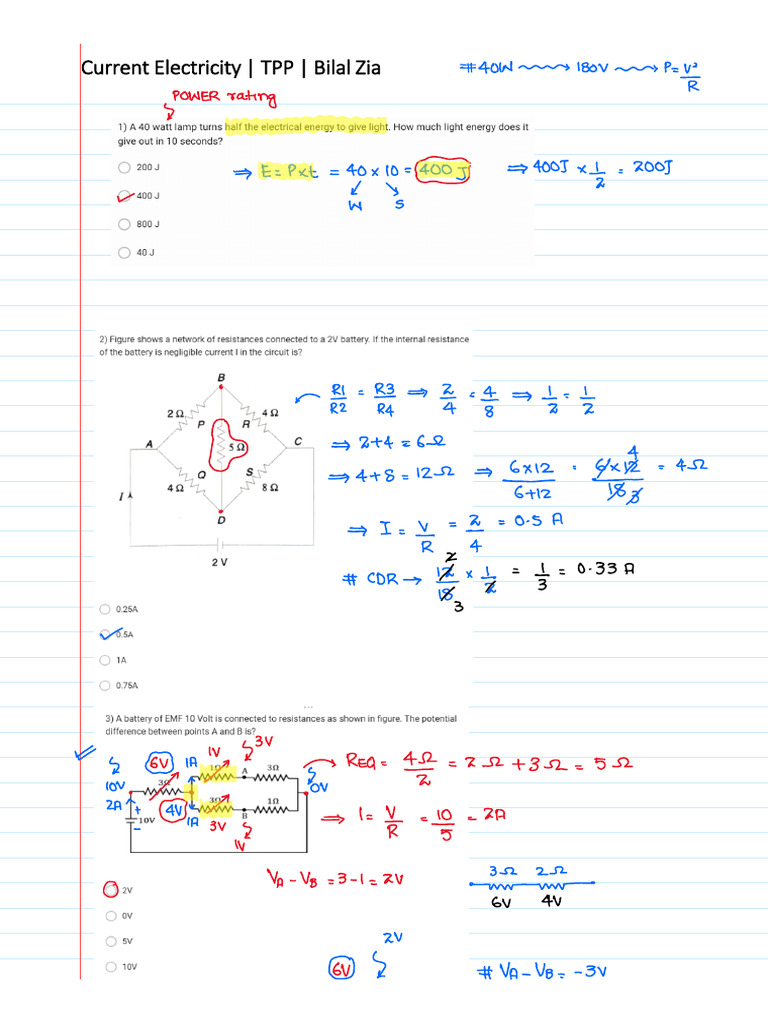 Current Electricity | TPP | Bilal Zia
#40W → 180V → P = V²/R
POWER rating
1) A 40 watt lamp turns half the electrical energy to give light. How much light energy does it
give out in 10 seconds?
200 J
400 J
800 J
40 J
⇒ E = P×t = 40 × 10 = 400 J ⇒ 400J × 1/2 = 200J
W S
2) Figure shows a network of resistances connected to a 2V battery. If the internal resistance
of the battery is negligible current I in the circuit is?
B
2 Ω 4 Ω
P R
A 5 Ω C
Q S
4 Ω 8 Ω
I
D
2 V
R1/R2 = R3/R4 ⇒ 2/4 = 4/8 ⇒ 1/2 = 1/2
⇒ 2+4 = 6Ω
⇒ 4+8 = 12Ω ⇒ 6×12/6+12 = 6×12/18 = 4Ω
4
3
⇒ I = V/R = 2/4 = 0.5 A
# CDR → 12/18 × 1/2 = 1/3 = 0.33 A
2
3
0.25A
0.5A
1A
0.75A
...
3) A battery of EMF 10 Volt is connected to resistances as shown in figure. The potential
difference between points A and B is?
1V 3V
6V 1A 1Ω A 3Ω
10V 3Ω 0V
2A 4V 3Ω 1Ω
+ 10V 1A 3V B
− 1V
REQ = 4Ω/2 = 2Ω + 3Ω = 5Ω
⇒ I = V/R = 10/5 = 2A
VA − VB = 3 − 1 = 2V
3Ω 2Ω
6V 4V
2V
0V
5V
10V
2V
6V
# VA − VB = −3V